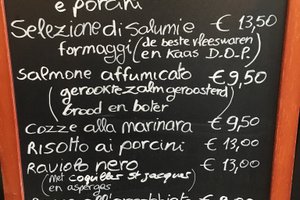 e porcini
Selezione di salumi e € 13,50
formaggi (de beste vleeswaren
en kaas D.O.P.)
Salmone affumicato € 9,50
(gerookte zalm geroosterd
brood en boter)
Cozze alla marinara € 9,50
Risotto ai porcini € 13,00
Raviolo nero € 13,00
(met coquilles St jacques
en asperges)